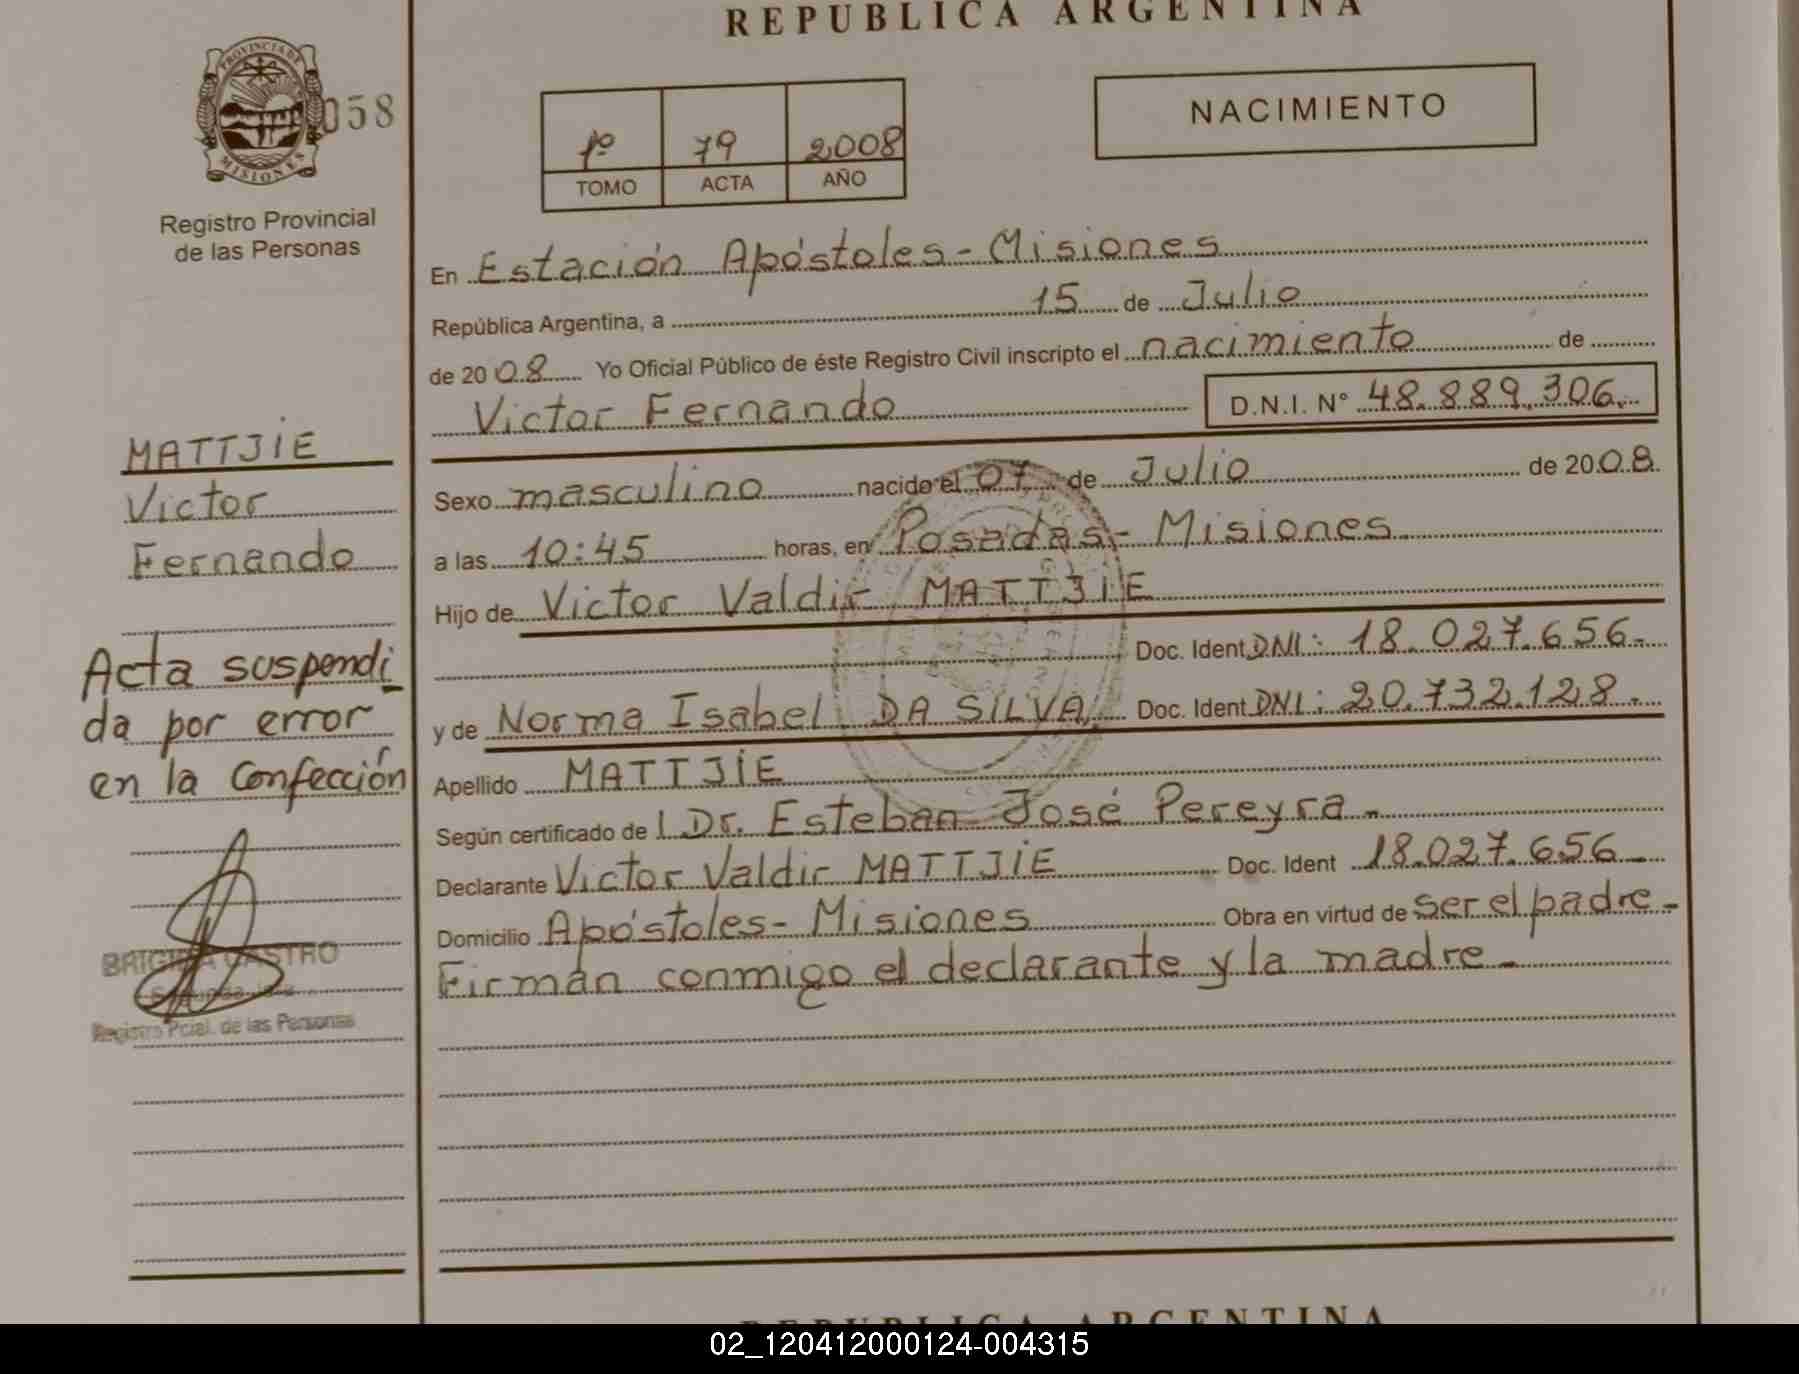 REPUBLICA ARGENTINA
PROVINCIA DE
MISIONES
058
Registro Provincial
de las Personas
1º 79 2008
TOMO ACTA AÑO
NACIMIENTO
En Estación Apóstoles - Misiones
República Argentina, a 15 de Julio
de 2008 Yo Oficial Público de éste Registro Civil inscripto el nacimiento de
Victor Fernando D.N.I. N° 48.889.306.
Sexo masculino nacido el 07 de Julio de 2008.
a las 10:45 horas, en Posadas - Misiones
Hijo de Victor Valdir MATTJIE
Doc. Ident DNI: 18.027.656-
y de Norma Isabel DA SILVA, Doc. Ident DNI: 20.732.128.-
Apellido MATTJIE
Según certificado de l Dr. Esteban José Pereyra -
Declarante Victor Valdir MATTJIE Doc. Ident 18.027.656-
Domicilio Apóstoles - Misiones Obra en virtud de ser el padre -
Firman conmigo el declarante y la madre -
MATTJIE
Victor
Fernando
Acta suspendi_
da por error
en la Confección
BRIGIDA CASTRO
Registro Pcial. de las Personas
REPUBLICA ARGENTINA
02_120412000124-004315